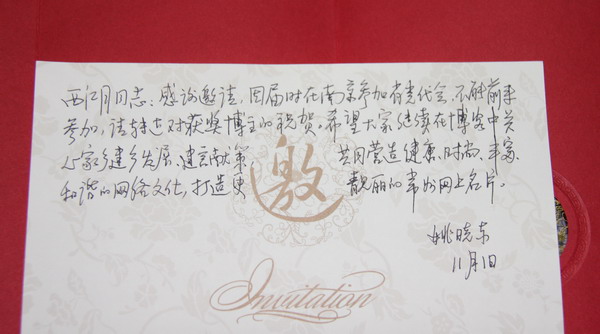 西江月同志：感谢邀请，因届时在南京参加省党代会，不能前来
参加，请转达对获奖博主的祝贺。希望大家继续在博客中关
心家乡建乡发展、建言献策，共同营造健康、时尚、丰富、
和谐的网络文化，打造更靓丽的常州网上名片。
邀
姚晓东
11月1日
Invitation